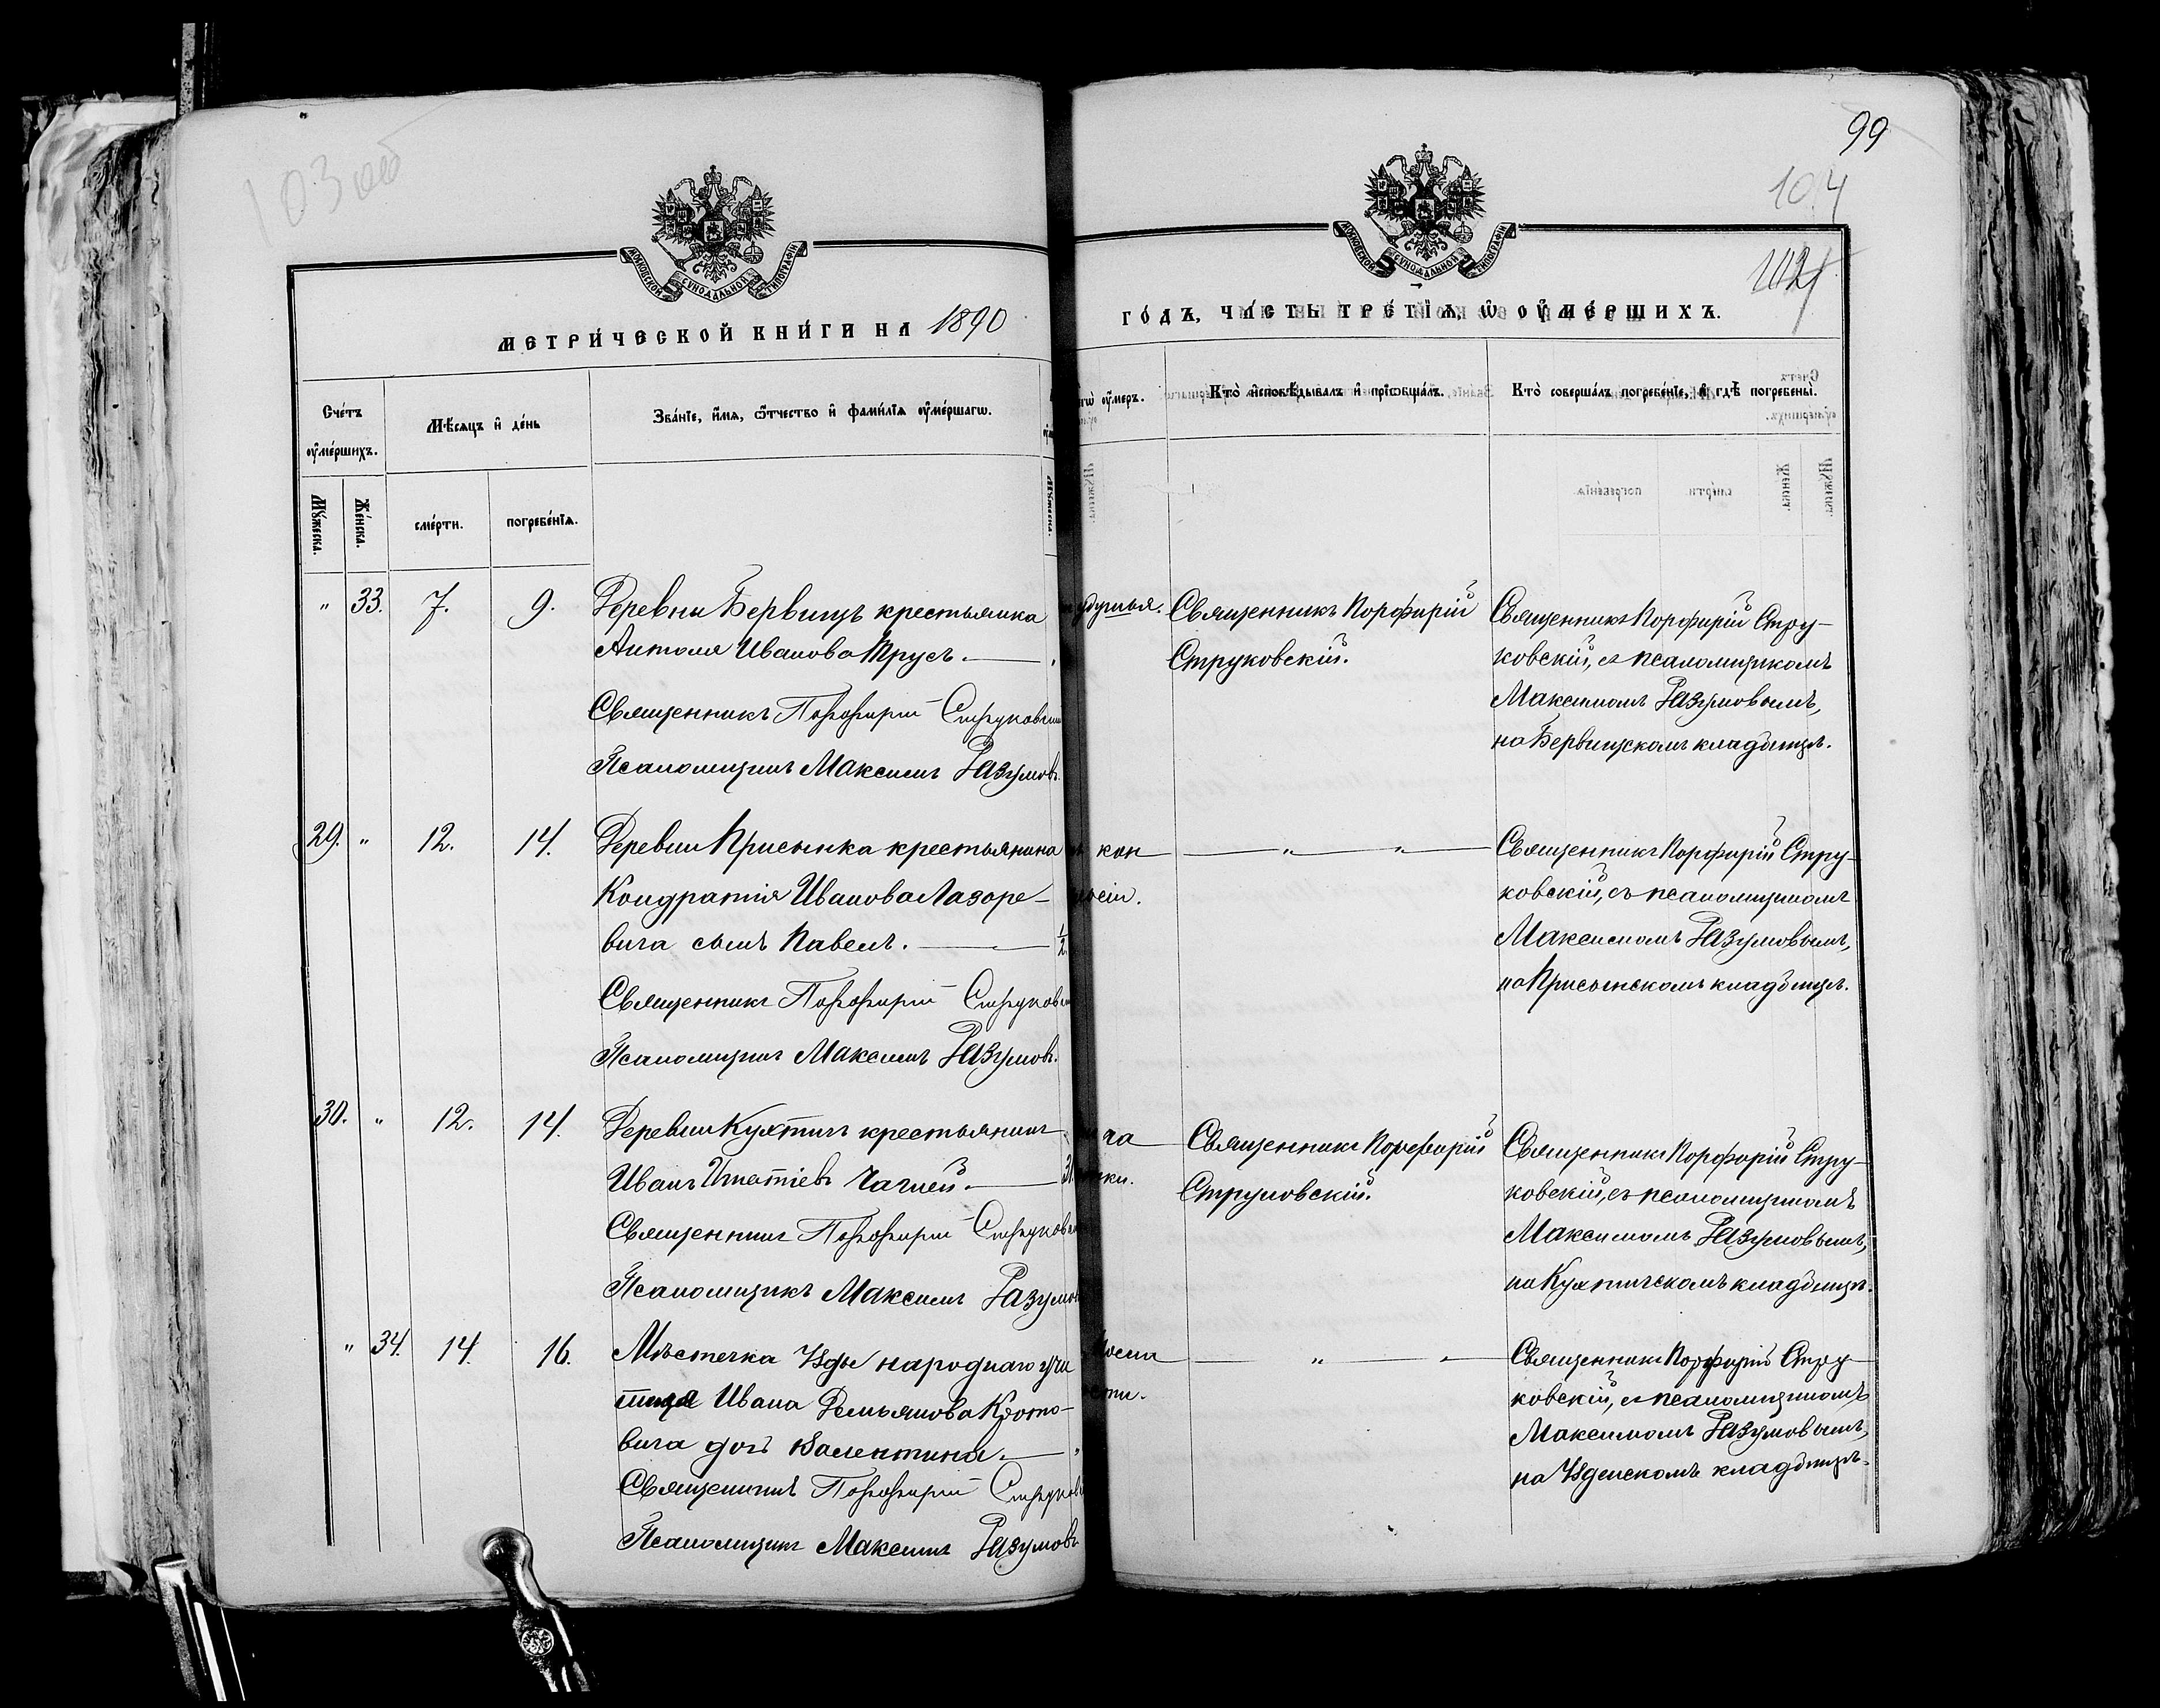 103 об
99
104
112
МОСКОВСКОЙ СѴНОДАЛЬНОЙ ТИПОГРАФІИ
МОСКОВСКОЙ СѴНОДАЛЬНОЙ ТИПОГРАФІИ
МЕТРИ́ЧЕСКОЙ КНИ́ГИ НА 1890
ГО́ДЪ, ЧА́СТЬ ТРЕ́ТІѦ, Ѡ҆ ОУ҆МЕ́РШИХЪ.
Сче́тъ оу҆ме́ршихъ.
Мѣ́сѧцъ и҆ де́нь
Зва́нїе, и҆́мѧ, ѻ҆́тчество и҆ фами́лїѧ оу҆ме́ршагѡ.
оу҆́меръ.
Кто̀ и҆сповѣ́дывалъ и҆ прїѡбща́лъ.
Кто̀ соверша́лъ погребе́нїе, и҆ гдѣ̀ погребены̀.
Мꙋ́жеска.
Же́нска.
сме́рти.
погребе́нїѧ.
" 33. 7. 9. Деревни Бервищъ крестьянка
Антоля Иванова Трусь.
Священникъ Порфирій
Псаломщикъ Максимъ Разумовъ.
Священникъ Порфирій
Струковскій.
Священникъ Порфирій Стру-
ковскій, съ псаломщикомъ
Максимомъ Разумовымъ,
на Бервищскомъ кладбищѣ.
29. " 12. 14. Деревни Присынка крестьянина
Кондратія Иванова Лазаре-
вича сынъ Павелъ. 1/2
Священникъ Порфирій
Псаломщикъ Максимъ Разумовъ.
" "
Священникъ Порфирій Стру-
ковскій, съ псаломщикомъ
Максимомъ Разумовымъ,
на Присынскомъ кладбищѣ.
30. " 12. 14. Деревни Кухтичъ крестьянинъ
Иванъ Игнатіевъ Чаглей.
Священникъ Порфирій
Псаломщикъ Максимъ
Священникъ Порфирій
Струковскій.
Священникъ Порфирій Стру-
ковскій, съ псаломщикомъ
Максимомъ Разумовымъ,
на Кухтичскомъ кладбищѣ.
" 34. 14. 16. Мѣстечка Узды народнаго учи
теля Ивана Демьянова Крото-
вича дочь Валентина.
Священникъ Порфирій
Псаломщикъ Максимъ Разумовъ
" "
Священникъ Порфирій Стру-
ковскій, съ псаломщикомъ
Максимомъ Разумовымъ,
на Узденскомъ кладбищѣ.